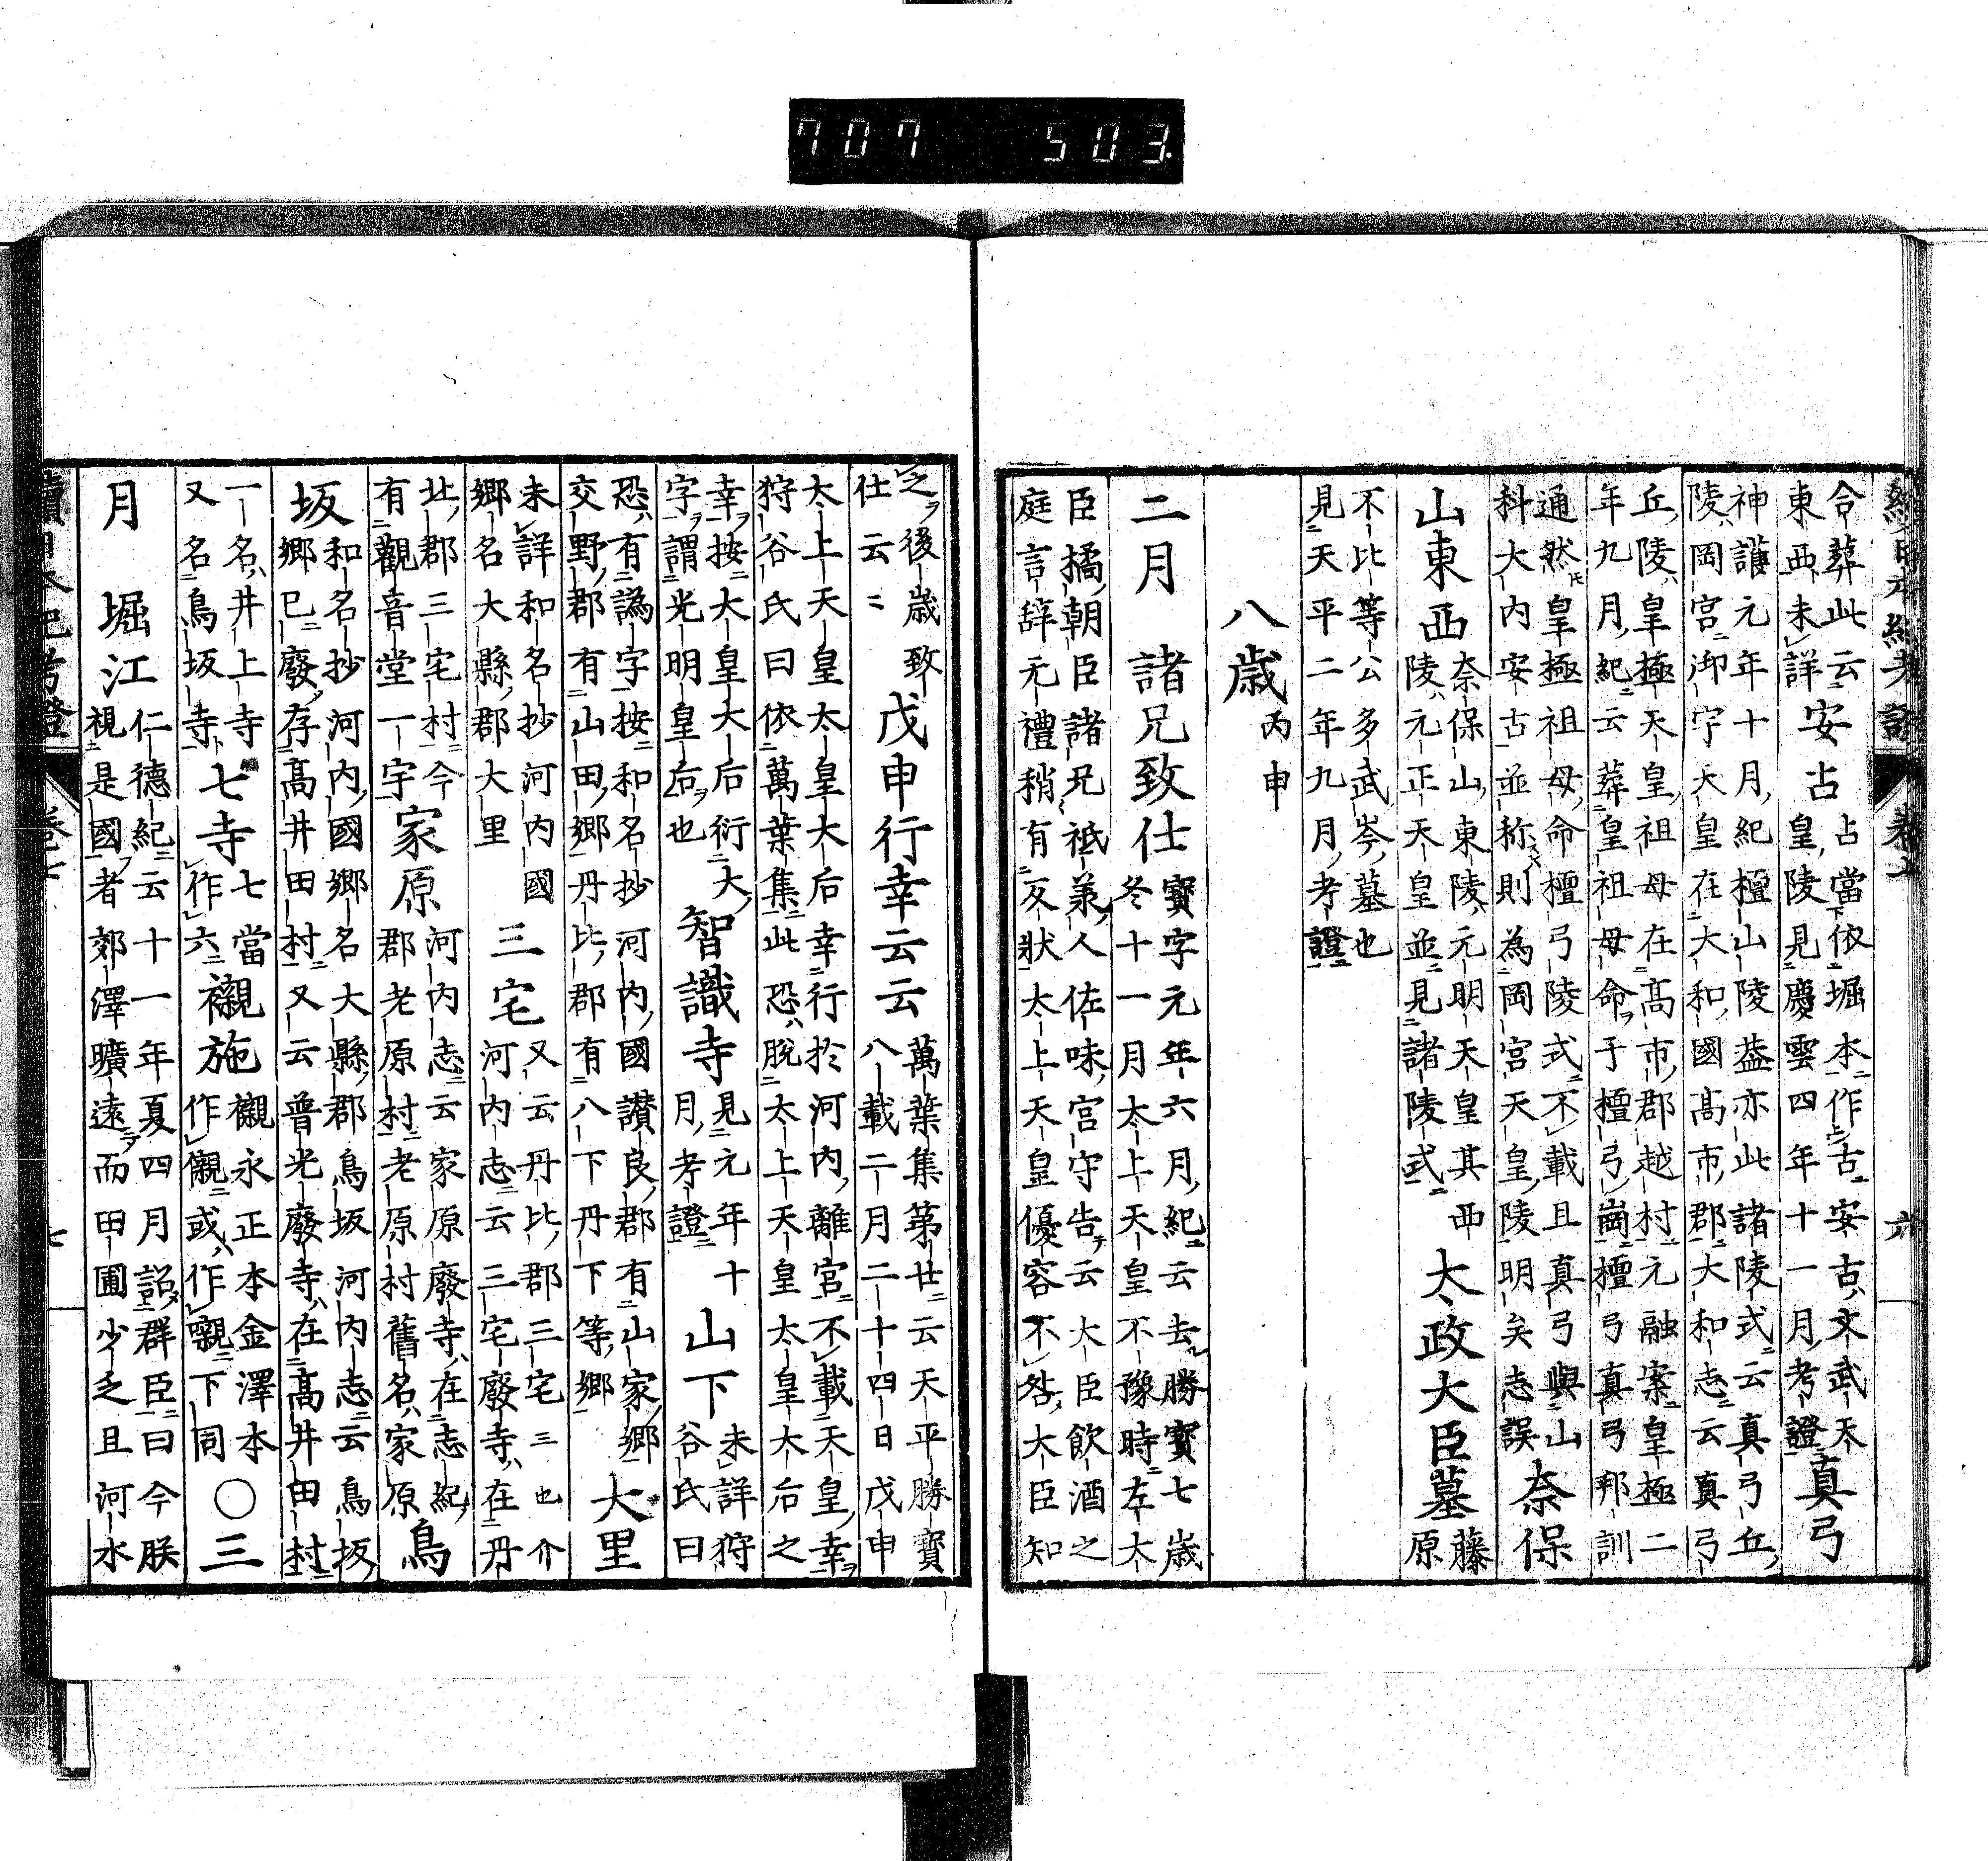 707 503
續日本紀考證 卷七 六
合葬此云安古占當依堀本作古安古文武天真弓
東西未詳 皇陵見慶雲四年十一月考證
神護元年十月紀檀山陵葢亦此諸陵式云真弓丘
陵岡宮御宇天皇在大和國高市郡大和志云真弓
丘陵皇極天皇祖母在高市郡越村元融案皇極二
年九月紀云葬皇祖母命于檀弓崗檀弓真弓邦訓
通然皇極祖母命檀弓陵式不載且真弓與山奈保
科大内安古並称則為岡宮天皇陵明矣志誤
山東西奈保山東陵元明天皇其西太政大臣墓藤
陵元正天皇並見諸陵式 原
不比等公多武岑墓也
見天平二年九月考證
八歲丙申
二月 諸兄致仕寶字元年六月紀云去勝寶七歲
冬十一月太上天皇不豫時左大
臣橘朝臣諸兄祗兼人佐味宮守告云大臣飲酒之
庭言辭无禮稍有反狀太上天皇優容不咎大臣知
之後歲致戊申行幸云云萬葉集第廿云天平勝寶
仕云〻 八載二月二十四日戊申
太上天皇太皇大后幸行於河内離宮不載天皇幸
狩谷氏曰依萬葉集此恐脫太上天皇太皇大后之
幸按大皇大后衍大智識寺見元年十山下未詳狩
字謂光明皇后也 月考證 谷氏曰
恐有譌字按和名抄河内國讃良郡有山家鄉大里
交野郡有山田鄉丹比郡有八下丹下等鄉
未詳和名抄河内國三宅又云丹比郡三宅三也介
鄉名大縣郡大里 河内志云三宅廢寺在丹
北郡三宅村今家原河内志云家原廢寺在志紀鳥
有觀音堂一宇 郡老原村老原村舊名家原
坂和名抄河内國鄉名大縣郡鳥坂河内志云鳥坂
鄉已廢存高井田村又云普光廢寺在高井田村
一名井上寺七寺七當襯施襯永正本金澤本〇三
又名鳥坂寺 作六 作儭或作嚫下同
月 堀江仁德紀云十一年夏四月詔群臣曰今朕
視是國者郊澤曠遠而田圃少乏且河水
續日本紀考證 卷七 七